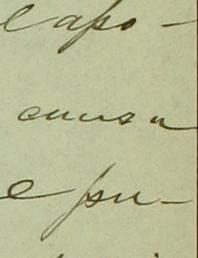 capo-
causa
e pu-